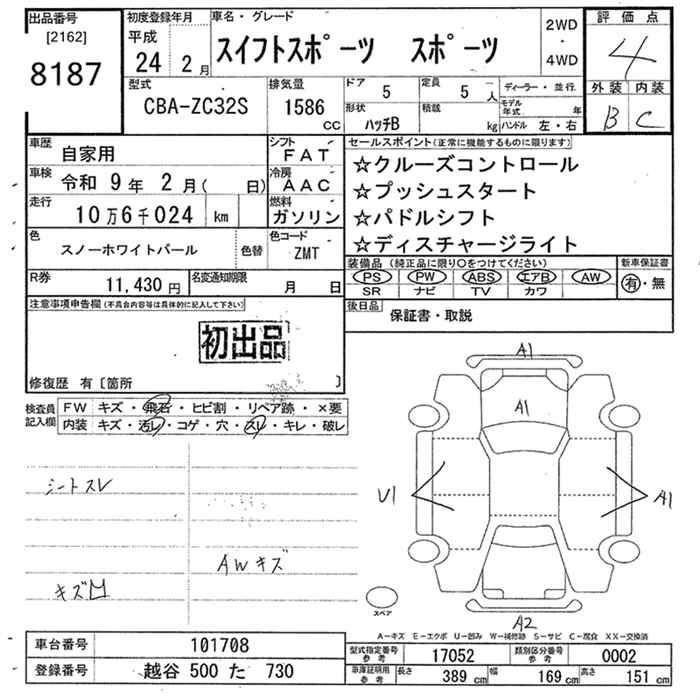 出品番号
[2162]
8187
初度登録年月
平成
24 2月
車名・グレード
スイフトスポーツ スポーツ
2WD
・
4WD
評価点
4
外装 内装
B C
型式
CBA-ZC32S
排気量
1586
CC
ドア
5
定員
5 人
形状
ハッチB
積載
kg
ディーラー・並行
モデル年式 年
ハンドル 左・右
車歴
自家用
シフト
FAT
車検
令和 9年 2月( 日)
冷房
AAC
走行
10万6千024 km
燃料
ガソリン
色
スノーホワイトパール
色替
色コード
ZMT
R券
11,430円
名変通知期限
月 日
セールスポイント(正常に機能するものに限ります)
☆クルーズコントロール
☆プッシュスタート
☆パドルシフト
☆ディスチャージライト
装備品(純正品に限り○をつけてください)
PS PW ABS エアB AW
SR ナビ TV カワ
新車保証書
有・無
後日品
保証書・取説
注意事項申告欄(不具合内容等は具体的に記入して下さい)
初出品
修復歴 有〔箇所 〕
検査員記入欄
FW キズ・飛石・ヒビ割・リペア跡・×要
内装 キズ・汚レ・コゲ・穴・スレ・キレ・破レ
シートスレ
AWキズ
キズ凹
A1
A1
U1
A1
A2
スペア
A-キズ E-エクボ U-凹み W-補修跡 S-サビ C-腐食 XX-交換済
車台番号
101708
登録番号
越谷 500 た 730
型式指定番号 参考
17052
類別区分番号 参考
0002
車庫証明用 参考
長さ 389 cm
幅 169 cm
高さ 151 cm